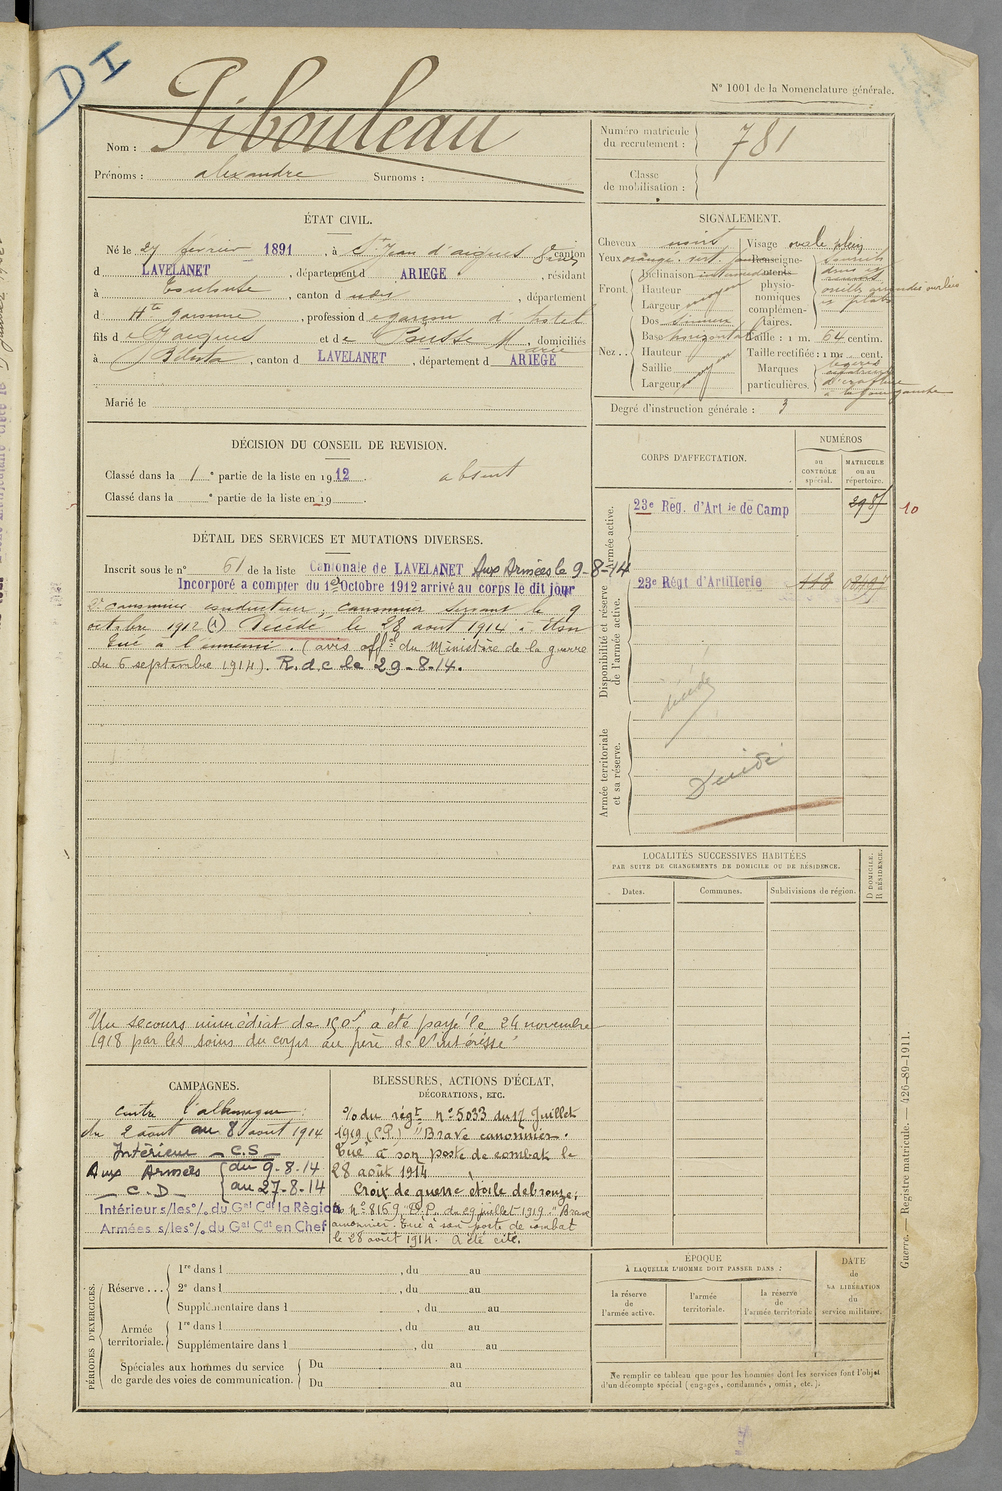 DI
N° 1001 de la Nomenclature générale.
Nom : Pibouleau
Prénoms : alexandre Surnoms :
Numéro matricule du recrutement : 781
Classe de mobilisation :
ÉTAT CIVIL.
Né le 27 février 1891, à St Jean d'aigues Vives canton
d LAVELANET, département d ARIEGE, résidant
à Toulouse, canton d udes, département
d Hte Garonne, profession d e garçon d'hotel
fils d e Jacques et de Pousse Marie, domiciliés
à Bélesta, canton d LAVELANET, département d ARIEGE
Marié le
SIGNALEMENT.
Cheveux noirs
Yeux orangé
Front. Inclinaison
Hauteur
Largeur moyen
Nez.. Dos sinueux
Base horizontal
Hauteur
Saillie
Largeur moy
Visage ovale plein
Renseignements physionomiques complémentaires.
Taille : 1 m. 64 centim.
Taille rectifiée : 1 m. cent.
Marques particulières.
Degré d'instruction générale : 3
DÉCISION DU CONSEIL DE REVISION.
Classé dans la 1e partie de la liste en 1912. absent
Classé dans la e partie de la liste en 19 .
DÉTAIL DES SERVICES ET MUTATIONS DIVERSES.
Inscrit sous le n° 61 de la liste Cantonale de LAVELANET Aux Armées le 9-8-14
Incorporé a compter du 1er Octobre 1912 arrivé au corps le dit jour
2e canonnier conducteur, canonnier servant le 9
octobre 1912 (A) Décédé le 28 aout 1914 à
Tué à l'ennemi. (avis offel du Ministère de la guerre
du 6 septembre 1914). R.d.c le 29-8-14.
Un secours immédiat de 150f a été payé le 24 novembre
1918 par les soins du corps au père de l'intéressé
CORPS D'AFFECTATION.
NUMÉROS
au CONTRÔLE spécial.
MATRICULE ou au répertoire.
Armée active.
23e Rég. d'Artie de Camp
10
Disponibilité et réserve de l'armée active.
23e Régt d'Artillerie 113
décédé
Armée territoriale et sa réserve.
Décédé
LOCALITÉS SUCCESSIVES HABITÉES
PAR SUITE DE CHANGEMENTS DE DOMICILE OU DE RÉSIDENCE.
Dates. Communes. Subdivisions de région. D DOMICILE. R RÉSIDENCE.
CAMPAGNES.
contre l'allemagne :
du 2 aout au 8 aout 1914
Intérieur - C.S -
Aux Armées du 9-8-14
- C.D - au 27-8-14
Intérieur s/les o/o du Gal Cdt la Région
Armées s/les o/o du Gal Cdt en Chef
BLESSURES, ACTIONS D'ÉCLAT,
DÉCORATIONS, ETC.
o/o du régt n° 5033 du 17 Juillet
1919 (C.P.) "Brave canonnier.
Tué à son poste de combat le
28 août 1914
Croix de guerre étoile de bronze;
n° 8169 "D". P. du 29 juillet 1919. "Brave
canonnier. Tué à son poste de combat
le 28 août 1914. a été cité.
PÉRIODES D'EXERCICES.
Réserve ... 1re dans l , du au
2e dans l , du au
Supplémentaire dans l , du au
Armée territoriale. 1re dans l , du au
Supplémentaire dans l , du au
Spéciales aux hommes du service de garde des voies de communication. Du au
Du au
EPOQUE
À LAQUELLE L'HOMME DOIT PASSER DANS :
la réserve de l'armée active.
l'armée territoriale.
la réserve de l'armée territoriale
DATE de LA LIBÉRATION du service militaire.
Ne remplir ce tableau que pour les hommes dont les services font l'objet
d'un décompte spécial (engagés, condamnés, omis, etc.).
Guerre. — Registre matricule. — 426-89-1911.